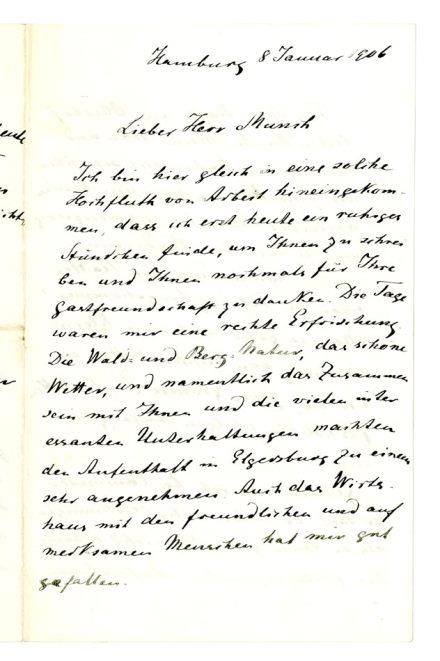 Hamburg 8 Januar 1906
Lieber Herr Munch
Ich bin hier gleich in eine solche
Hochfluth von Arbeit hineingekom-
men, dass ich erst heute ein ruhiges
Stündchen finde, um Ihnen zu schrei
ben und Ihnen nochmals für Ihre
Gastfreundschaft zu danken. Die Tage
waren mir eine rechte Erfrischung
Die Wald- und Berg-Natur, das schöne
Wetter, und namentlich das Zusammen
sein mit Ihnen und die vielen inter
essanten Unterhaltungen machten
den Aufenthalt in Elgersburg zu einem
sehr angenehmen. Auch das Wirts-
haus mit den freundlichen und auf
merksamen Menschen hat mir gut
gefallen.